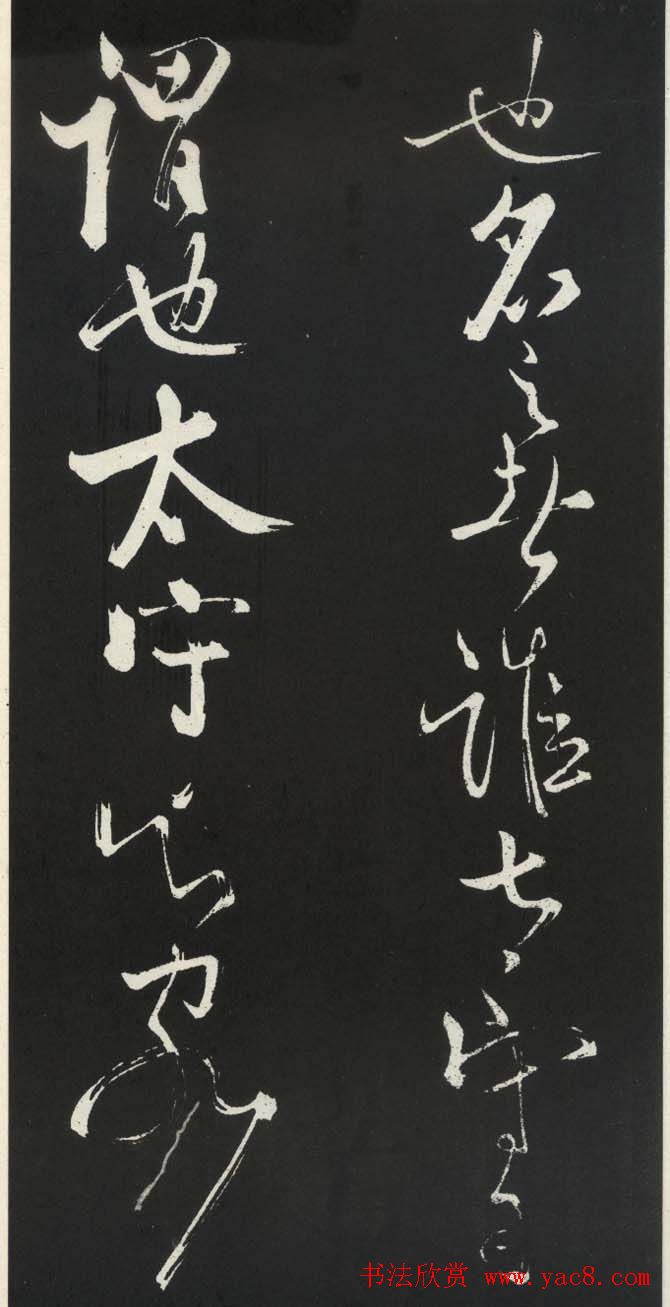 也名之者谁太守自
谓也太守与客
书法欣赏 www.yac8.com